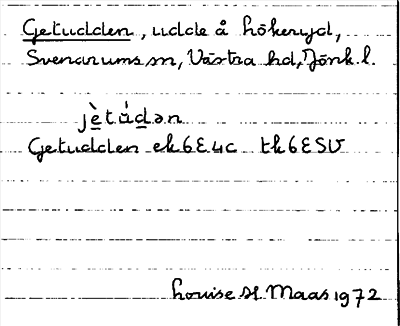 Getudden, udde å Hökeryd,
Svenarums sn, Västra hd, Jönk. l.
jètu̇́dən
Getudden ek 6E4c tk 6ESV
Louise H. Maas 1972